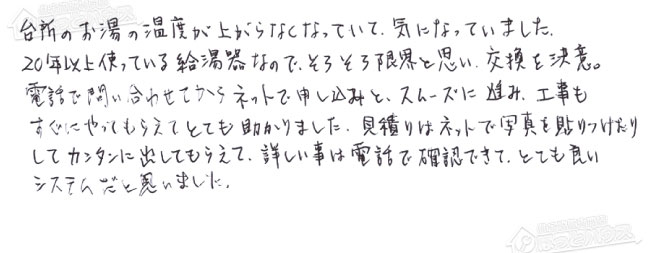 台所のお湯の温度が上がらなくなっていて、気になっていました。
20年以上使っている給湯器なので、そろそろ限界と思い、交換を決意。
電話で問い合わせてからネットで申し込みと、スムーズに進み、工事も
すぐにやってもらえてとても助かりました。見積りはネットで写真を貼りつけたり
してカンタンに出してもらえて、詳しい事は電話で確認できて、とても良い
システムだと思いました。